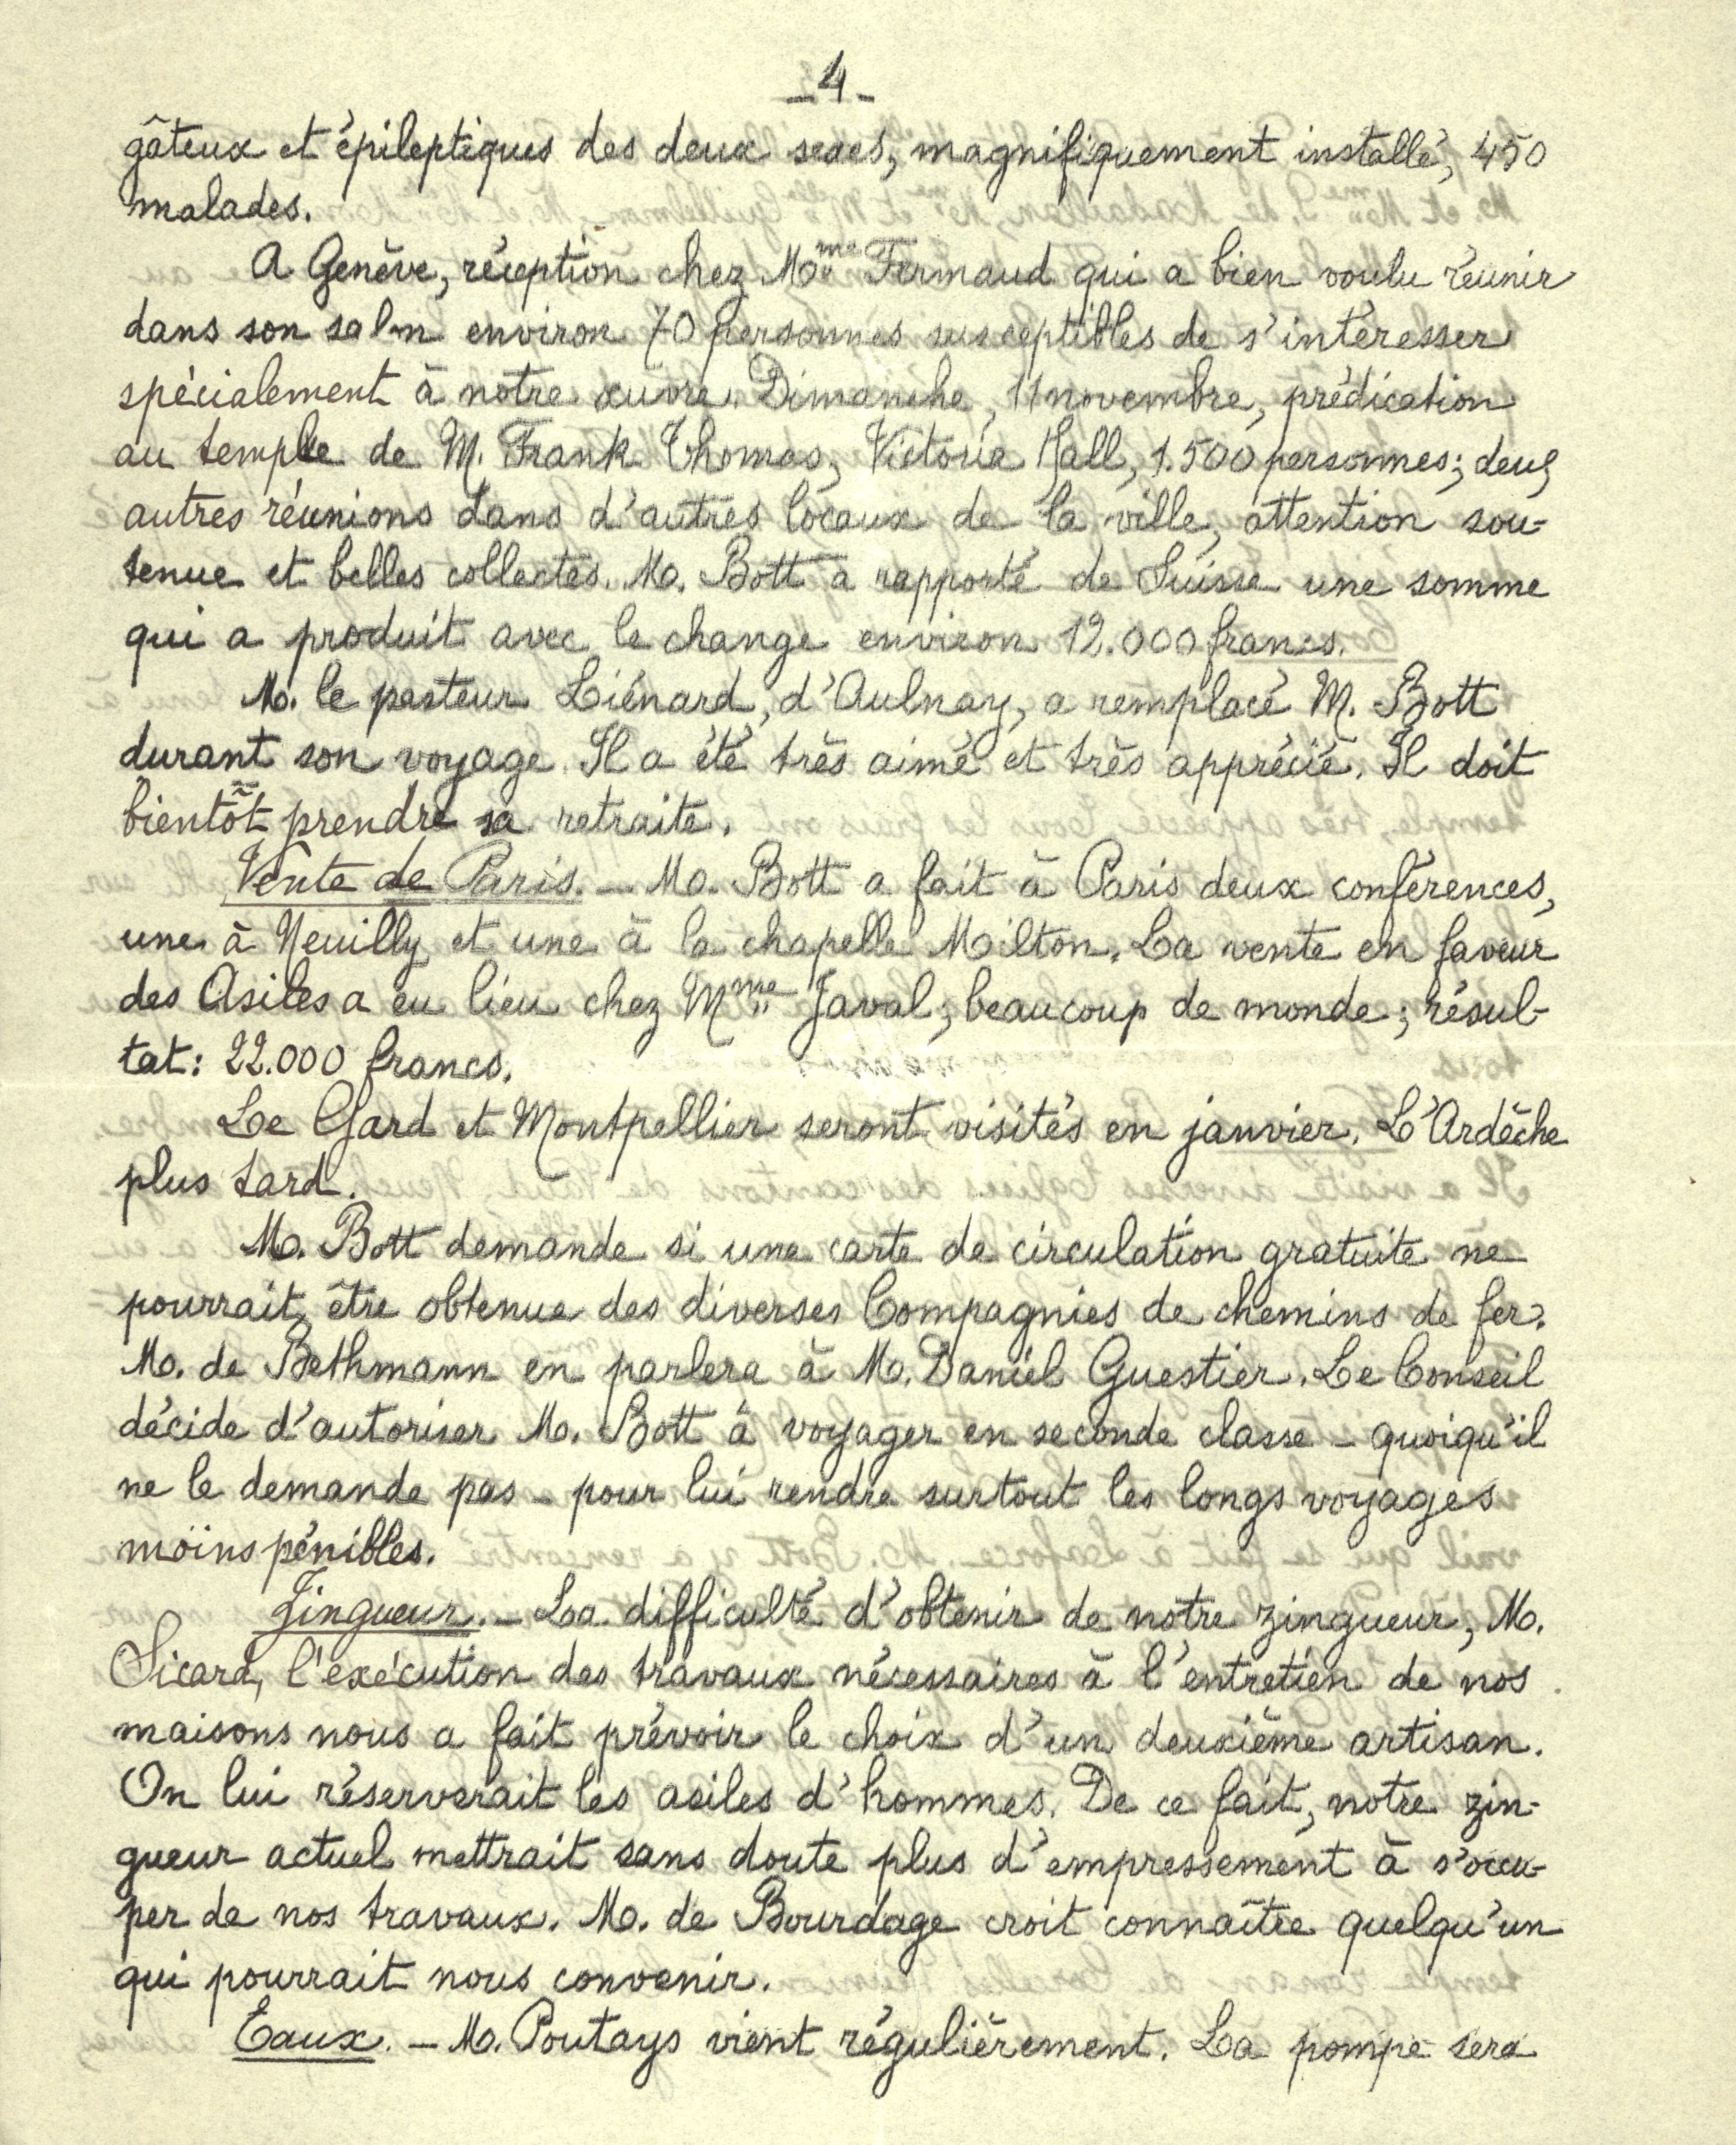 -4-
gâteux et épileptiques des deux sexes, magnifiquement installé, 450
malades.
A Genève, réception chez Mme Fermaud qui a bien voulu réunir
dans son salon environ 70 personnes susceptibles de s'intéresser
spécialement à notre œuvre. Dimanche, 11 novembre, prédication
au temple de M. Frank Thomas, Victoria Hall, 1.500 personnes; deux
autres réunions dans d'autres locaux de la ville, attention sou-
tenue et belles collectes. M. Bott a rapporté de Suisse une somme
qui a produit avec le change environ 12.000 francs.
M. le pasteur Liénard, d'Aulnay, a remplacé M. Bott
durant son voyage. Il a été très aimé et très apprécié. Il doit
bientôt prendre sa retraite.
Vente de Paris. — M. Bott a fait à Paris deux conférences,
une à Neuilly et une à la chapelle Milton. La vente en faveur
des Asiles a eu lieu chez Mme Javal; beaucoup de monde; résul-
tat: 22.000 francs.
Le Gard et Montpellier seront visités en janvier. L'Ardèche
plus tard.
M. Bott demande si une carte de circulation gratuite ne
pourrait être obtenue des diverses Compagnies de chemins de fer.
M. de Bethmann en parlera à M. Daniel Guestier. Le Conseil
décide d'autoriser M. Bott à voyager en seconde classe - quoiqu'il
ne le demande pas - pour lui rendre surtout les longs voyages
moins pénibles.
Zingueur. — La difficulté d'obtenir de notre zingueur, M.
Sicard, l'exécution des travaux nécessaires à l'entretien de nos
maisons nous a fait prévoir le choix d'un deuxième artisan.
On lui réserverait les asiles d'hommes. De ce fait, notre zin-
gueur actuel mettrait sans doute plus d'empressement à s'occu-
per de nos travaux. M. de Bourdage croit connaître quelqu'un
qui pourrait nous convenir.
Eaux. — M. Poutays vient régulièrement. La pompe sera